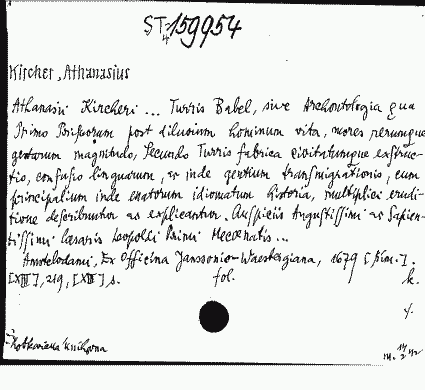 ST4 159954
Kircher, Athanasius
Athanasii Kircheri ... Turris Babel, sive Archontologia qua
Primo Priscorum post diluvium hominum vita, mores rerumque
gestarum magnitudo, Secundo Turris fabrica civitatumque exstruc-
tio, confusio linguarum, & inde gentium transmigrationis, cum
principalium inde enatorum idiomatum historia, multiplici erudi-
tione describuntur & explicantur. Auspiciis Augustissimi ac Sapien-
tissimi Caesaris Leopoldi Primi Mecoenatis ...
Amstelodami, Ex Officina Janssonio-Waesbergiana, 1679 [
], 219, [ ] s. fol. k.
knihovna